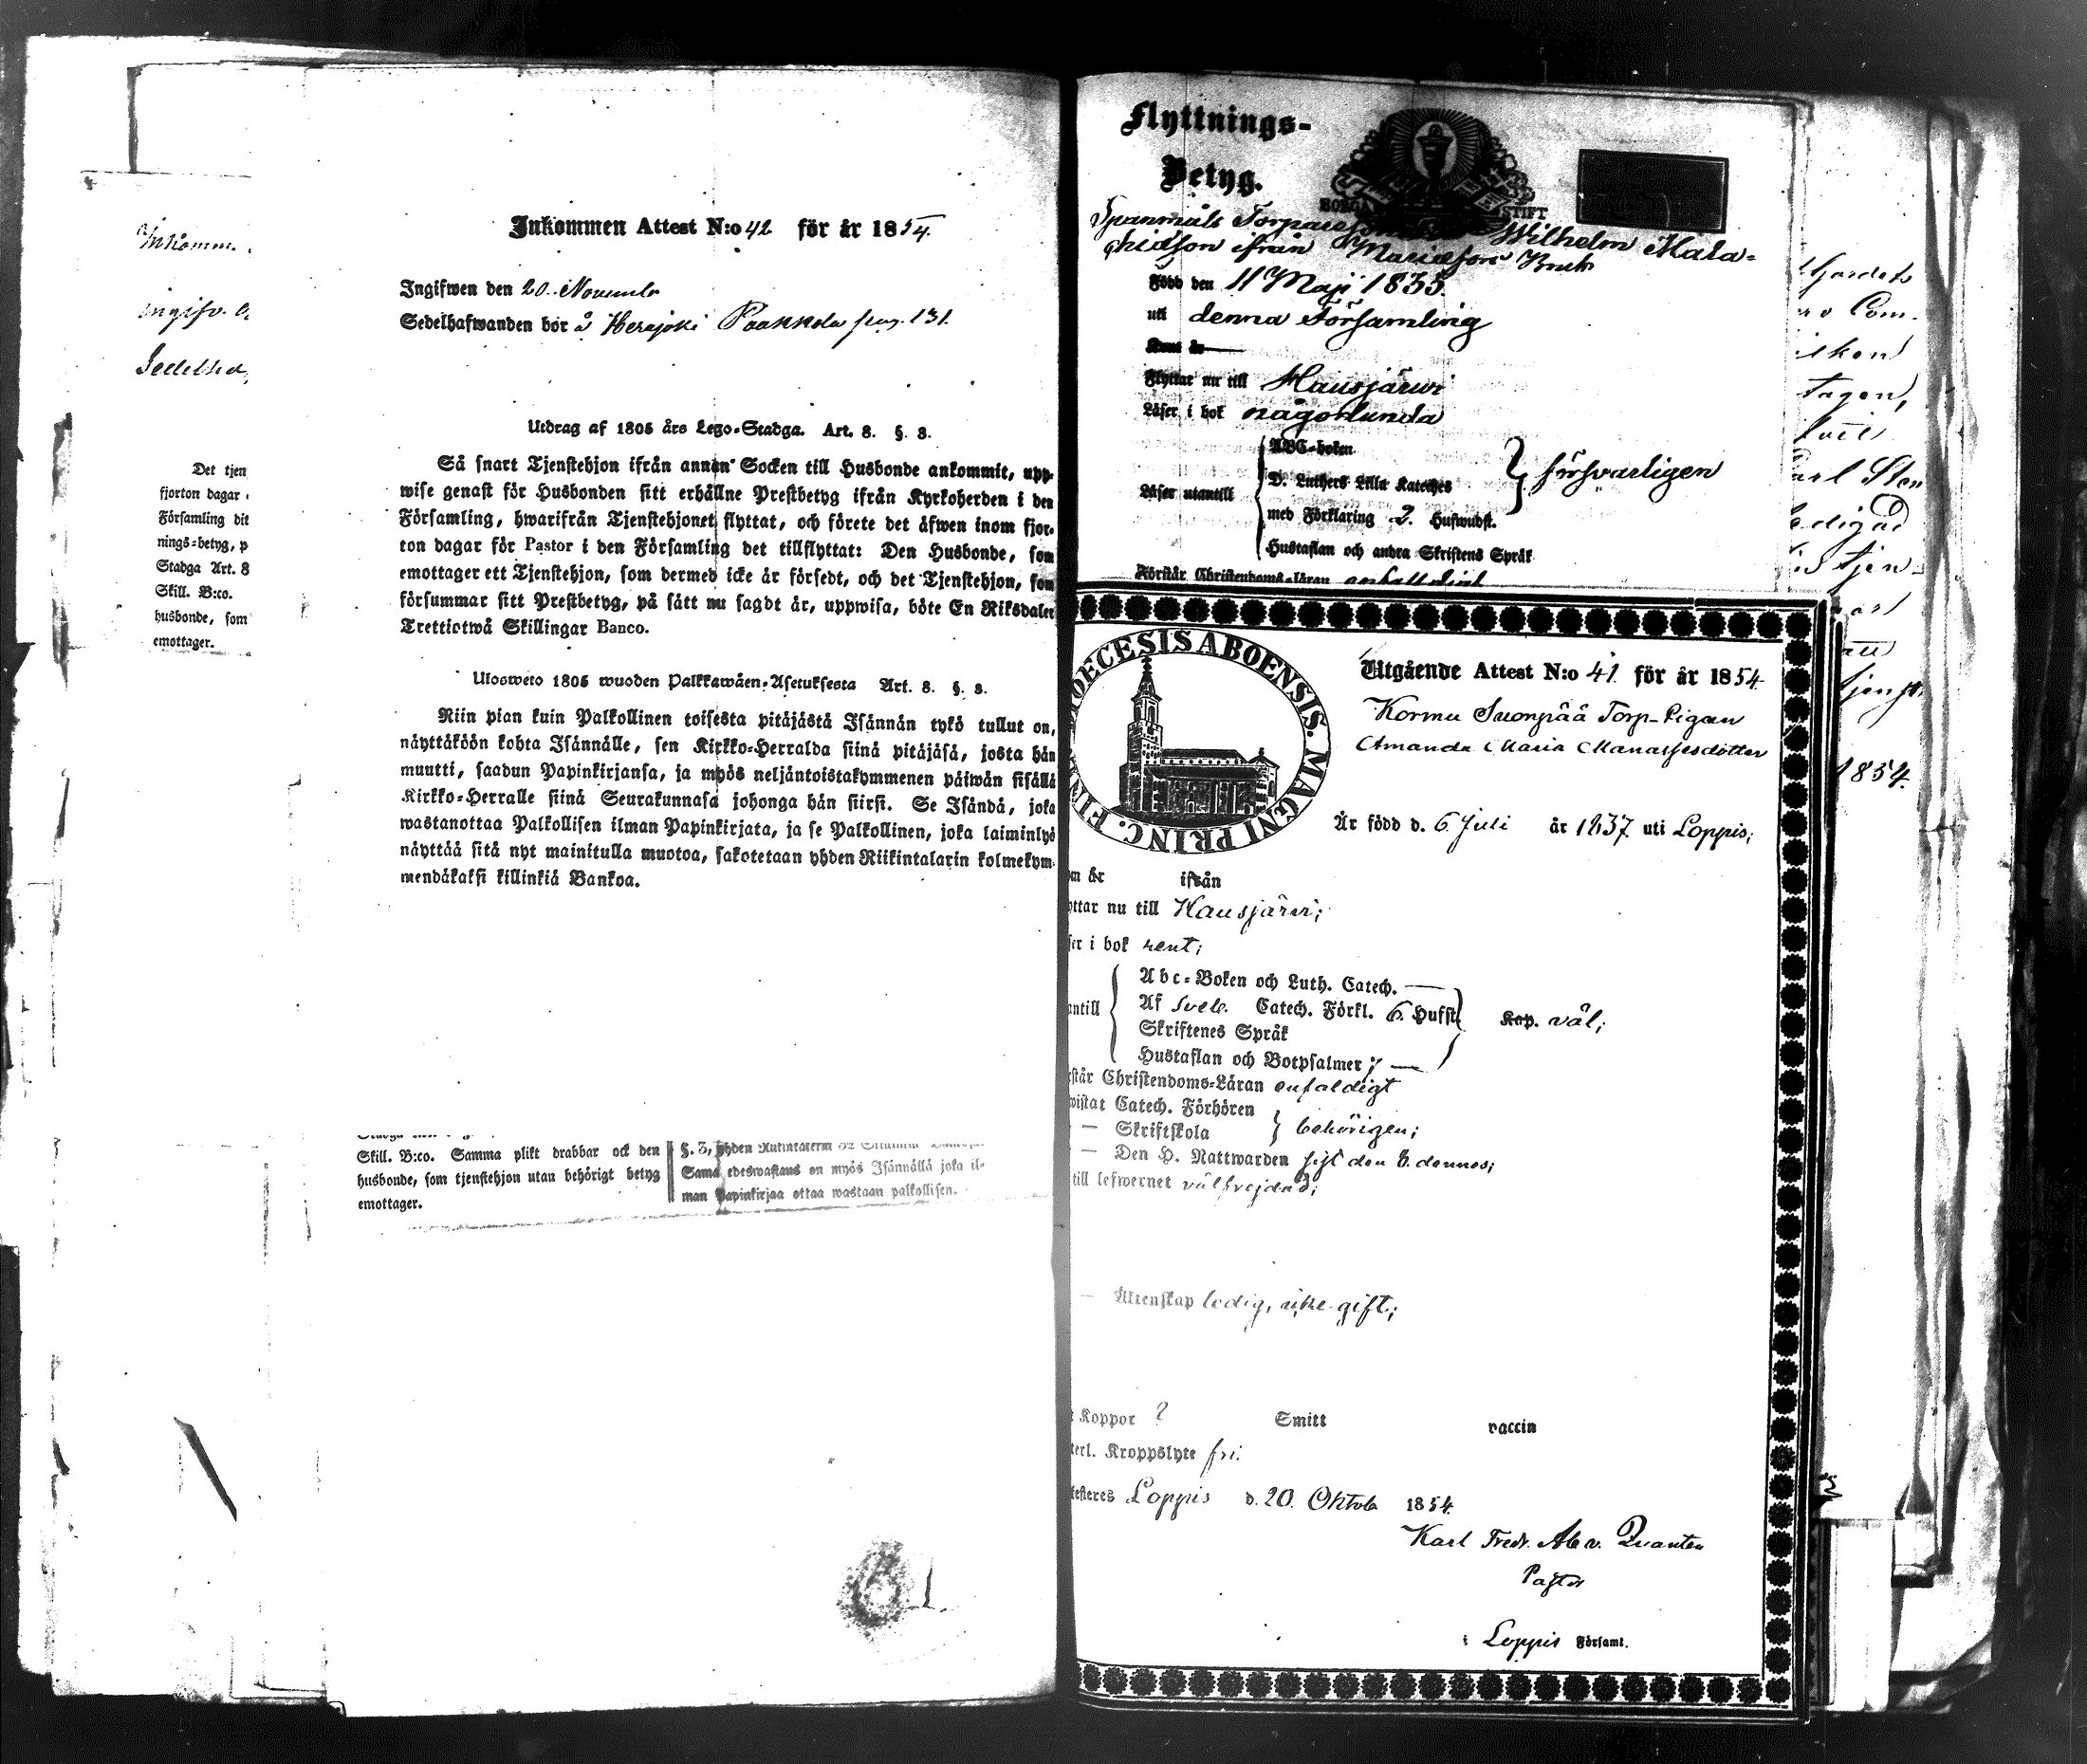 Inkomm.
ingifv.
Sedelha
Det tjen
fjorton dagar
Församling dit
nings-betyg, p
Stadga Art. 8
Skill. B:co.
husbonde, som
emottager.
Inkommen Attest N:o 42 för år 1854.
Ingifwen den 20. Novemb
Sedelhafwanden bor å Herajoki Paakkola pag. 131.
Utdrag af 1805 års Lego-Stadga. Art. 8. §. 3.
Så snart Tjenstehjon ifrån annan Socken till Husbonde ankommit, upp-
wise genast för Husbonden sitt erhållne Prestbetyg ifrån Kyrkoherden i den
Församling, hwarifrån Tjenstehjonet flyttat, och förete det äfwen inom fjor-
ton dagar för Pastor i den Församling det tillflyttat: Den Husbonde, som
emottager ett Tjenstehjon, som dermed icke är försedt, och det Tjenstehjon, som
försummar sitt Prestbetyg, på sätt nu sagdt är, uppwisa, böte En Riksdaler
Trettiotwå Skillingar Banco.
Ulosweto 1805 wuoden Palkkawäen-Asetuksesta Art. 8. §. 3.
Niin pian kuin Palkollinen toisesta pitäjästä Isännän tykö tullut on,
näyttäköön kohta Isännälle, sen Kirkko-Herralda siinä pitäjäsä, josta hän
muutti, saadun Papinkirjansa, ja myös neljäntoistakymmenen päiwän sisällä
Kirkko-Herralle siinä Seurakunnasa johonga hän siirsi. Se Isändä, joka
wastanottaa Palkollisen ilman Papinkirjata, ja se Palkollinen, joka laiminlyö
näyttää sitä nyt mainitulla muotoa, sakotetaan yhden Riikintalarin kolmekym-
mendäkaksi killinkiä Bankoa.
Skill. B:co. Samma plikt drabbar ock den
husbonde, som tjenstehjon utan behörigt betyg
emottager.
§. 3, yhden
Sama edeswastaus on myös Isännällä joka il-
man Papinkirjaa ottaa wastaan palkollisen.
Flyttnings-
Betyg.
BORGÅ STIFT
Spanmåls Torpare Wilhelm Mala-
chiasson ifrån Mariefors Bruk
Född den 11 Maji 1835.
uti denna Församling
Flyttar nu till Hausjärwi
Läser i bok någorlunda
ABC-boken
D. Luthers Lilla Kateches
Läser utantill
med Förklaring 2. Hufwudst.
försvarligen
Hustaflan och andra Skriftens Språk
Förstår Christendoms-läran enfalldigt
DIOECESIS ABOENSIS. MAGNI PRINC. FIN
Utgående Attest N:o 41. för år 1854.
Kormu Suonpää Torp-Pigan
Amanda Maria Manassesdotter
Är född d. 6 Juli år 1837 uti Loppis;
om år ifrån
yttar nu till Hausjärvi;
ser i bok rent;
Abc-Boken och Luth. Catech.
antill
Af Sveb. Catech. Förkl. 6. Hufst. Kap. väl;
Skriftenes Språk
Hustaflan och Botpsalmer
rstår Christendoms-Läran enfaldigt
wistat Catech. Förhören
— Skriftskola behörigen;
— Den H. Nattwarden sist den 8. dennes;
till lefwernet välfrejdad;
— Äktenskap ledig, icke gift;
Koppor ? Smitt vaccin
terl. Kroppslyte fri.
testeres Loppis d. 20. Oktob 1854.
Karl Fredr. Ab v. Quanten
Pastor
i Loppis Församl.
Com.
tagen,
tjen-
1854.